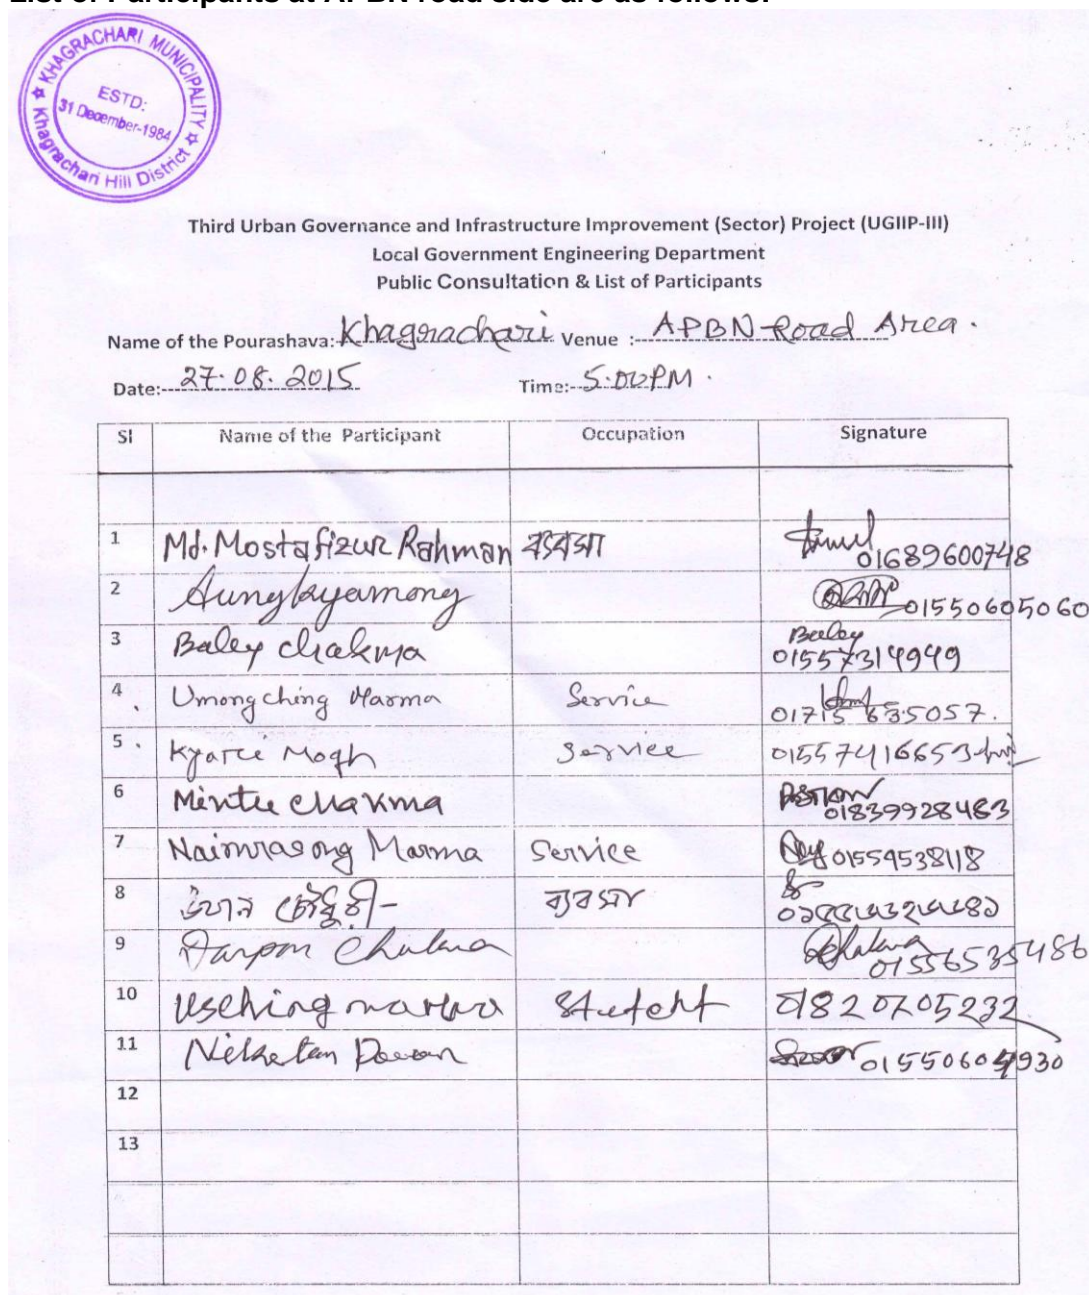 List of Participants at APBN road side are as follows:
KHAGRACHARI MUNICIPALITY
ESTD:
31 December-1984
Khagrachari Hill District
Third Urban Governance and Infrastructure Improvement (Sector) Project (UGIIP-III)
Local Government Engineering Department
Public Consultation & List of Participants
Name of the Pourashava: Khagrachari Venue : APBN Road Area.
Date: 27.08.2015 Time: 5.00PM.
Sl Name of the Participant Occupation Signature
1 Md. Mostafizur Rahman ব্যবসা 01689600748
2 Aungkyamong 01550605060
3 Baley Chakma Baley
01557314949
4 Umong ching Marma Service
01715 635057.
5 Kyarie Mogh Service 01557416653
6 Mintu Chakma
01839928463
7 Naimrasong Marma Service 01554538118
8 চৌধুরী ব্যবসা
9 Darpon Chakma 01556535486
10 Usching marma Student 01820705232
11 Niketan Dewan 01550604930
12
13